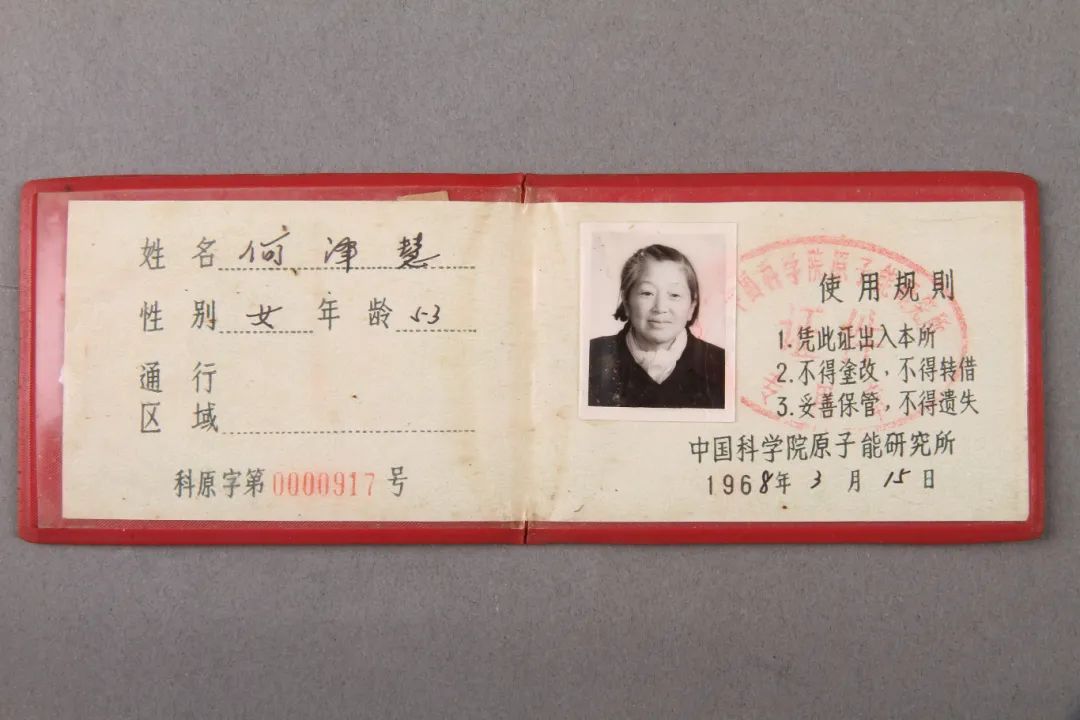 姓名 何津慧
性别 女 年龄 53
通行
区域
科原字第0000917号
中国科学院原子能研究所
证件
使用规則
1.凭此证出入本所
2.不得塗改，不得转借
3.妥善保管，不得遗失
中国科学院原子能研究所
1968年3月15日